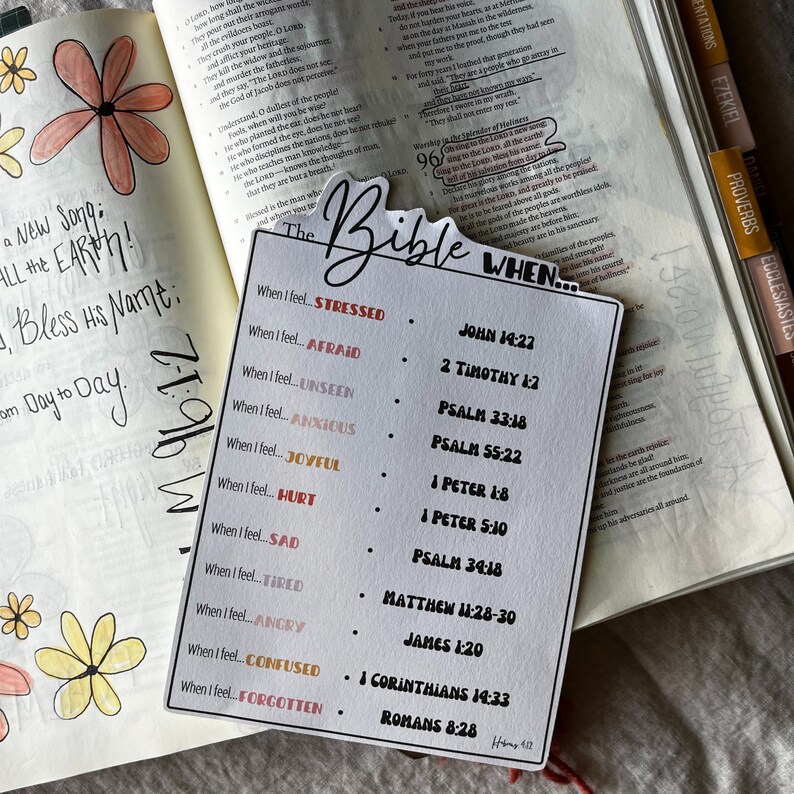 a New Song;
All the Earth!
Bless His Name;
om Day to Day.
M 96:1-2
O LORD, how lo
how long shall the wicked
They pour out their arrogant words;
all the evildoers boast.
They crush your people, O LORD,
and afflict your heritage.
They kill the widow and the sojourner,
and murder the fatherless;
and they say, "The LORD does not see;
the God of Jacob does not perceive."
Understand, O dullest of the people!
Fools, when will you be wise?
He who planted the ear, does he not hear?
He who formed the eye, does he not see?
He who disciplines the nations, does he not rebuke?
He who teaches man knowledge—
the LORD—knows the thoughts of man,
that they are but a breath.
Blessed is the man who
and whom you te
Today, if you hear his voice,
do not harden your hearts, as at Meribah,
as on the day at Massah in the wilderness,
when your fathers put me to the test
and put me to the proof, though they had seen
my work.
For forty years I loathed that generation
and said, "They are a people who go astray in
their heart,
and they have not known my ways."
Therefore I swore in my wrath,
"They shall not enter my rest."
Worship in the Splendor of Holiness
96 Oh sing to the LORD a new song;
sing to the LORD, all the earth!
Sing to the LORD, bless his name;
tell of his salvation from day to day.
Declare his glory among the nations,
his marvelous works among all the peoples!
For great is the LORD, and greatly to be praised;
he is to be feared above all gods.
all the gods of the peoples are worthless idols,
the LORD made the heavens.
and majesty are before him;
and beauty are in his sanctuary.
O families of the peoples,
and strength!
into his courts!
of holiness;
earth rejoice;
in it!
sing for joy
righteousness,
faithfulness.
let the earth rejoice;
coastlands be glad!
darkness are all around him;
and justice are the foundation of
him
up his adversaries all around.
EZEKIEL
DANIEL
PROVERBS
ECCLESIASTES
The Bible WHEN...
When I feel...STRESSED • JOHN 14:27
When I feel...AFRAID • 2 TIMOTHY 1:7
When I feel...UNSEEN • PSALM 33:18
When I feel...ANXIOUS • PSALM 55:22
When I feel...JOYFUL • 1 PETER 1:8
When I feel...HURT • 1 PETER 5:10
When I feel...SAD • PSALM 34:18
When I feel...TIRED • MATTHEW 11:28-30
When I feel...ANGRY • JAMES 1:20
When I feel...CONFUSED • 1 CORINTHIANS 14:33
When I feel...FORGOTTEN • ROMANS 8:28
Hebrews 4:12